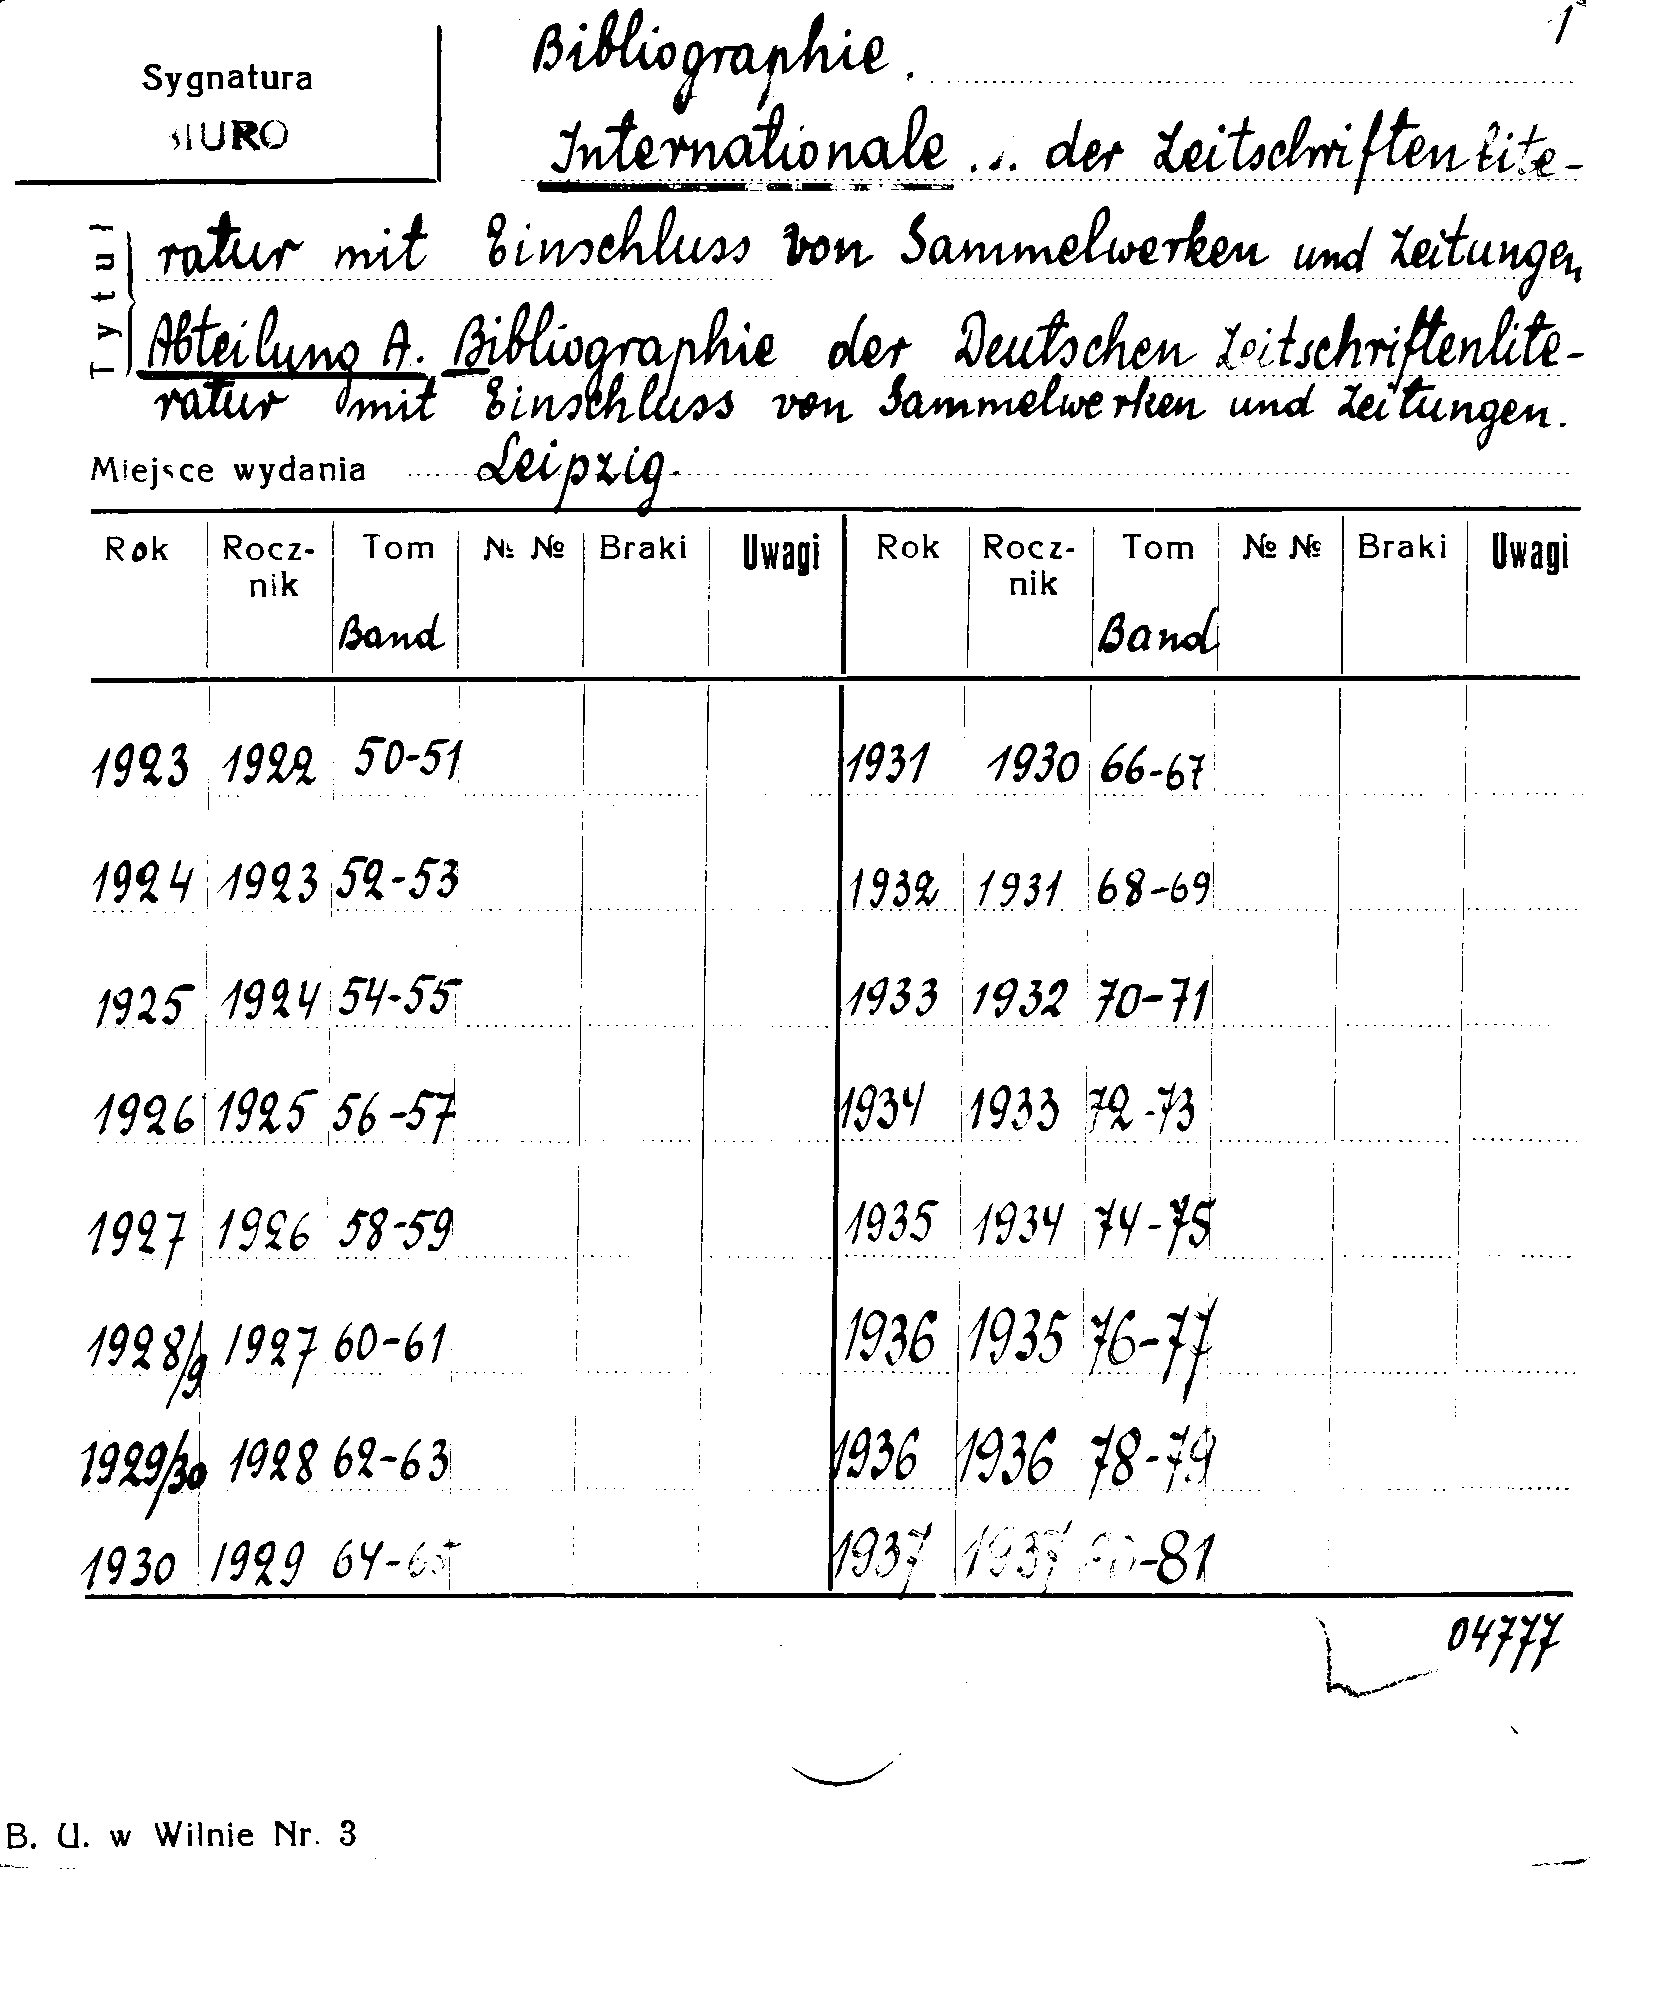 1
Bibliographie.
Sygnatura
BIURO
Internationale ... der Zeitschriftenlite-
ratur mit Einschluss von Sammelwerken und Zeitungen
Tytuł
Abteilung A. Bibliographie der Deutschen Zeitschriftenlite-
ratur mit Einschluss von Sammelwerken und Zeitungen.
Miejsce wydania Leipzig.
Rok Rocz- Tom № № Braki Uwagi Rok Rocz- Tom № № Braki Uwagi
nik nik
Band Band
1923 1922 50-51 1931 1930 66-67
1924 1923 52-53 1932 1931 68-69
1925 1924 54-55 1933 1932 70-71
1926 1925 56-57 1934 1933 72-73
1927 1926 58-59 1935 1934 74-75
1928/9 1927 60-61 1936 1935 76-77
1929/30 1928 62-63 1936 1936 78-79
1930 1929 64-65 1937 1937 80-81
04777
B. U. w Wilnie Nr. 3